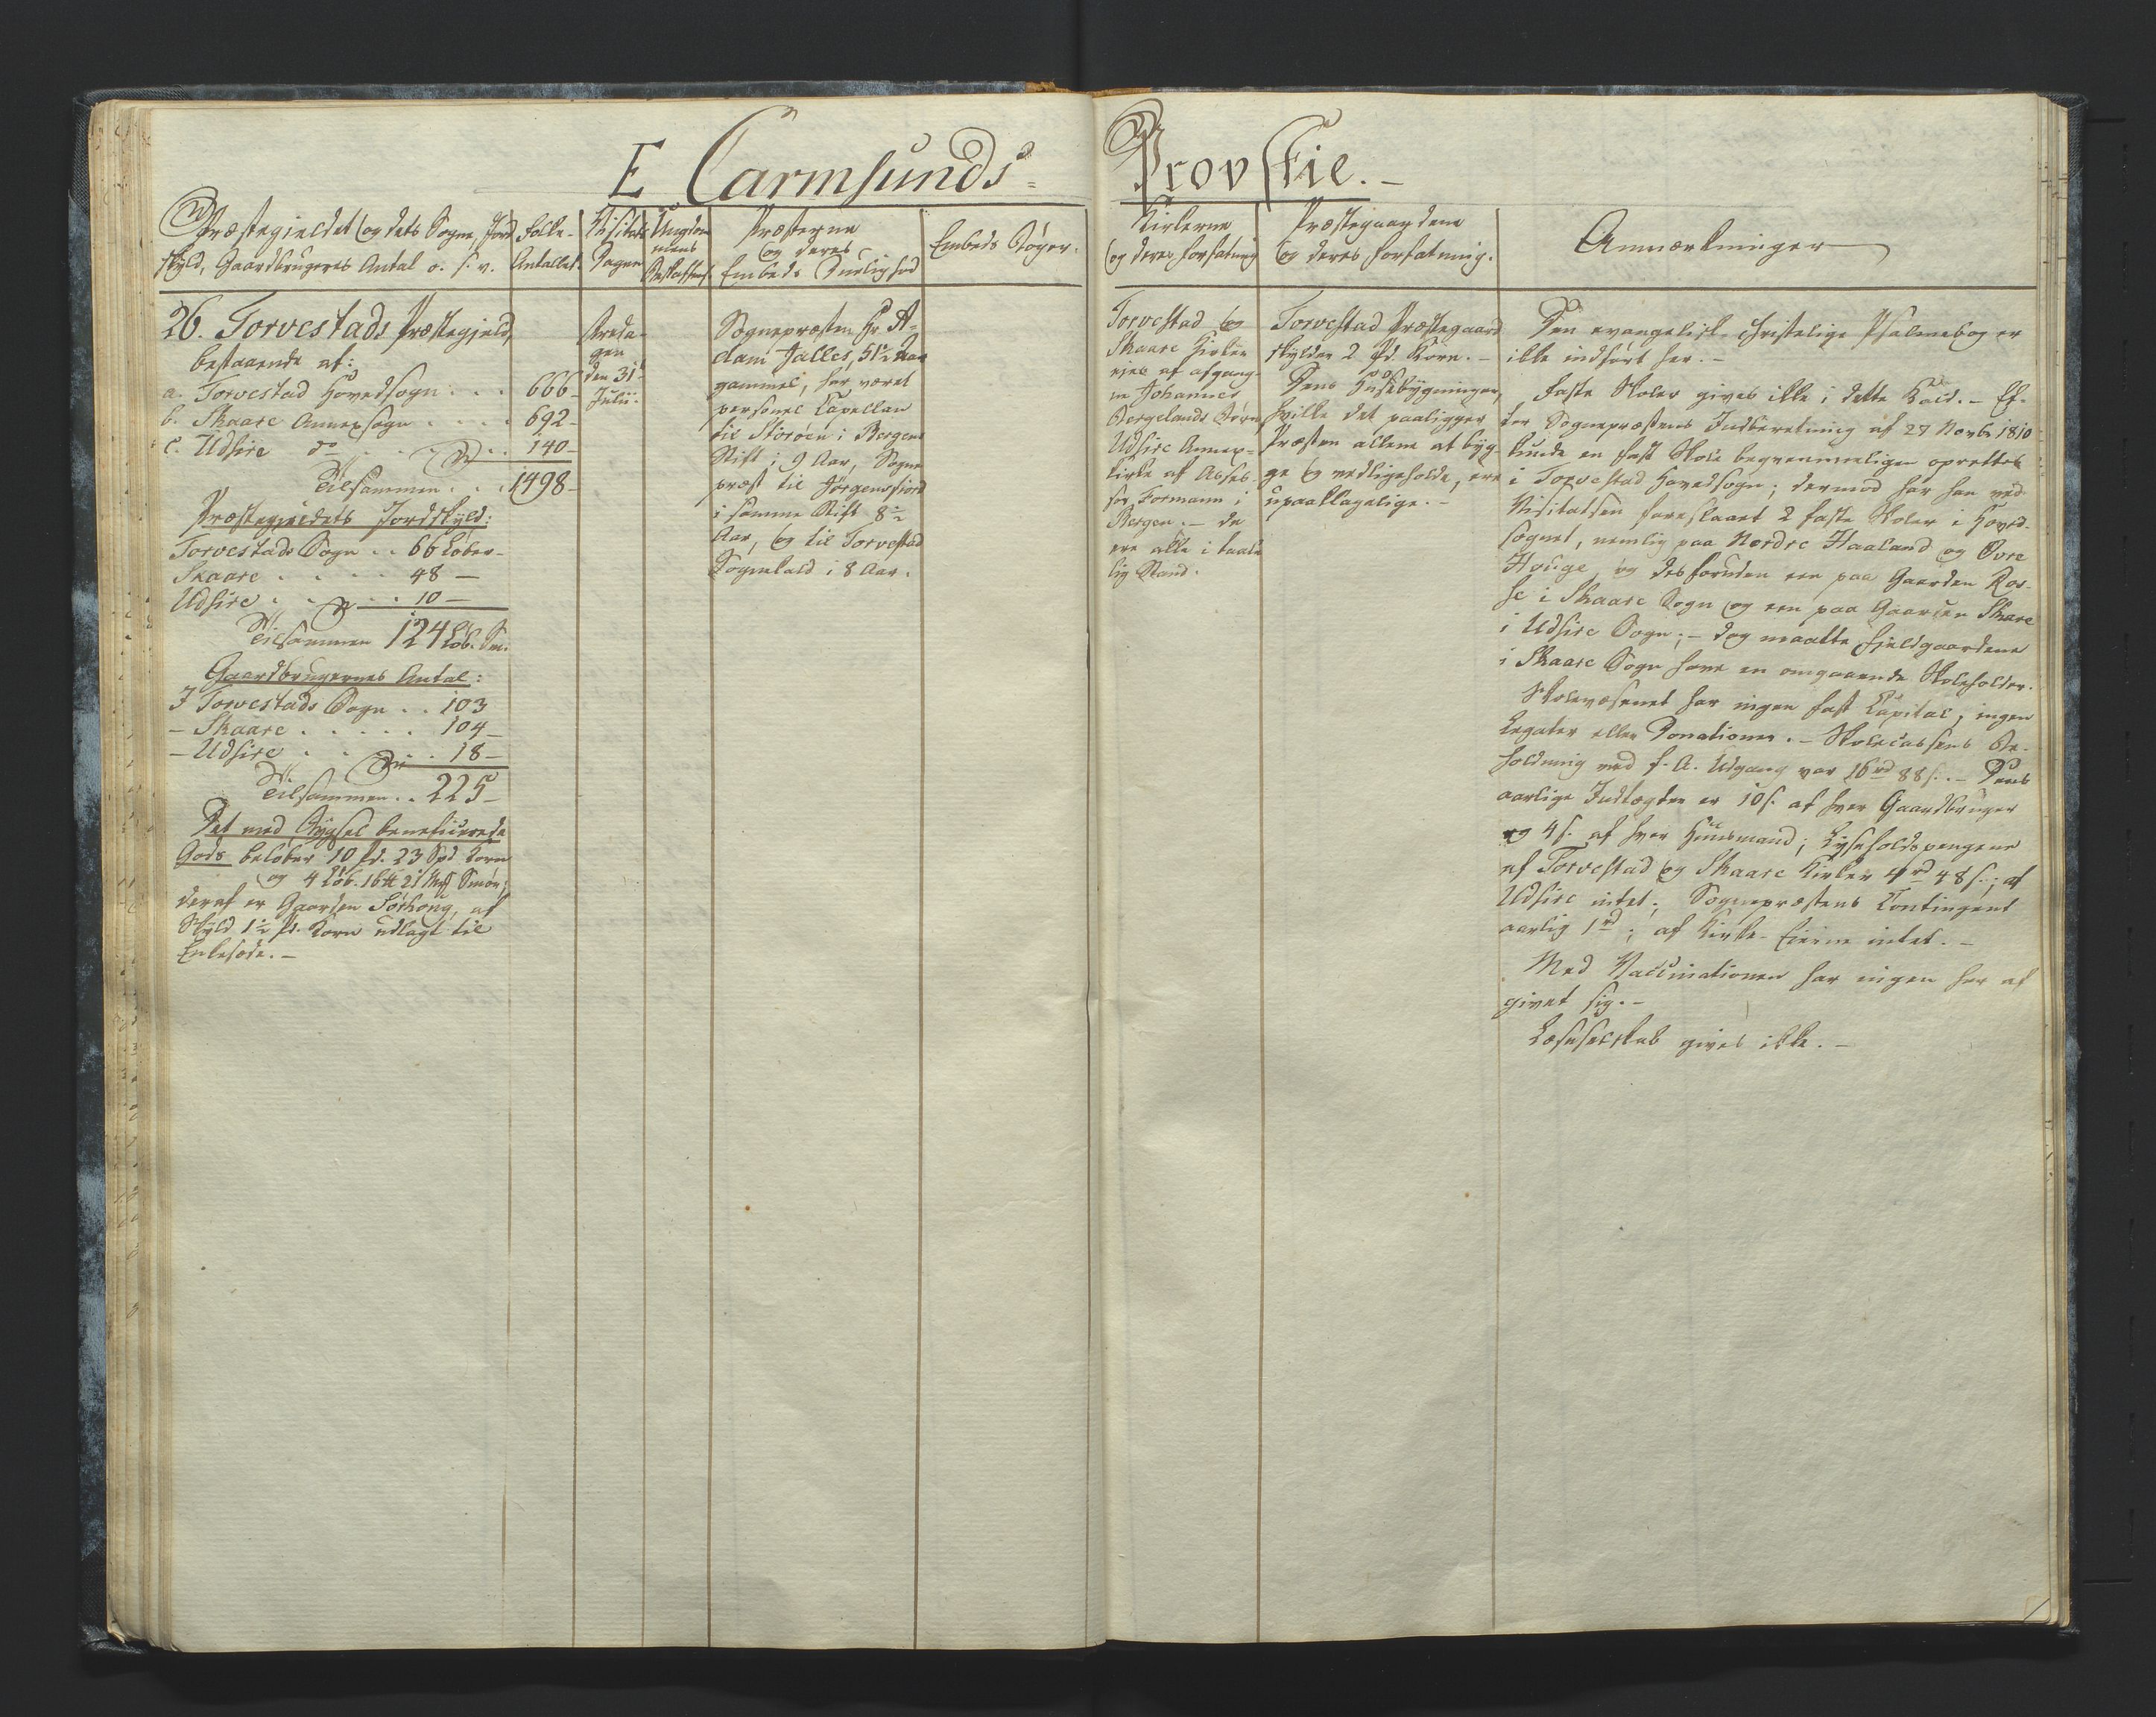 E Carmsunds=
Provstie.-
Præstegjeldet og dets Sogne, Jord
skyld, Gaardbrugeres Antal o. s. v.
Folke-
Antallet.
Visitats
Dagen
Ungdom
mens
Præsterne
og deres
Embeds Duelighed
Embeds Bøger.
26. Torvestads Præstegjeld,
bestaaende af:
a. Torvestad Hovedsogn . . . 666-
b. Skaare Annexsogn . . . . 692-
c. Udsire do . . . . 140-
Tilsammen . . . 1498-
Præstegjeldets Jordskyld:
Torvestads Sogn . . 66 Løber-
Skaare . . . . . 48 -
Udsire . . . . . 10 -
Tilsammen 124 Løb. Sm.
Gaardbrugernes Antal:
I Torvestads Sogn . . 103
- Skaare . . . . . 104-
- Udsire . . . . 18-
Tilsammen . . 225-
Det med Bygsel beneficerede
Gods beløber 10 Pd. 23 Spd Korn
og 4 Løb. 16 21 Smør;
deraf er Gaarden Sørhoug, af
Skyld 1½ Pd. Korn udlagt til
Enkesæde.-
Onsda-
gen
den 31
Julii.
Sognepræsten Hr A-
dam Jalles, 51½ Aar
gammel, har været
personel Capellan
til Storøen i Bergens
Stift i 9 Aar, Sogne
præst til Jørgensfiord
i samme Stift 8½
Aar, og til Torvestad
Sognekald i 8 Aar.
Kirkerne
og deres Forfatning
Præstegaardene
og deres Forfatning.
Anmærkninger
Torvestad og
Skaare Kirker
ejes af afgang-
ne Johannes
Bergelands Børn
Udsire Annex-
kirke af Asses-
sor Formann i
Bergen. - De
ere alle i taale
lig Stand.
Torvestad Præstegaard
skylder 2 Pd. Korn. -
Dens Huusebygninger,
hvilke det paaligger
Præsten allene at byg-
ge og vedligeholde, ere
upaaklagelige. -
Den evangelisk christelige Psalmebog er
ikke indført her. -
Faste Skoler gives ikke i dette Kald. - Ef-
ter Sognepræstens Indberetning af 27 Novbr 1810
kunde en fast Skole begvemmeligen oprettes
i Torvestad Hovedsogn; dermod har han ved
Visitatsen foreslaaet 2 faste Skoler i Hoved-
sognet, nemlig paa Nordre Haaland og Øvre
Houge, og desforuden een paa Gaarden Ros-
se i Skaare Sogn og een paa Gaarden Skare
i Udsire Sogn; - dog maatte Fieldgaardene
i Skaare Sogn have en omgaaende Skoleholder.
Skolevæsenet har ingen fast Capital, ingen
Legater eller Donationer. - Skolecassens Be-
holdning ved f. A. Udgang var 16 rd 88 s. - Dens
aarlige Indtægter er 10 s. af hver Gaardbruger
og 4 s. af hver Huusmand; Lyseholdspengene
af Torvestad og Skaare Kirker 4 rd 48 s.; af
Udsire intet; Sognepræstens Contingent
aarlig 1 rd; af Kirke-Eierne intet. -
Med Vaccinationen har ingen her af
givet sig. -
Læseselskab gives ikke. -